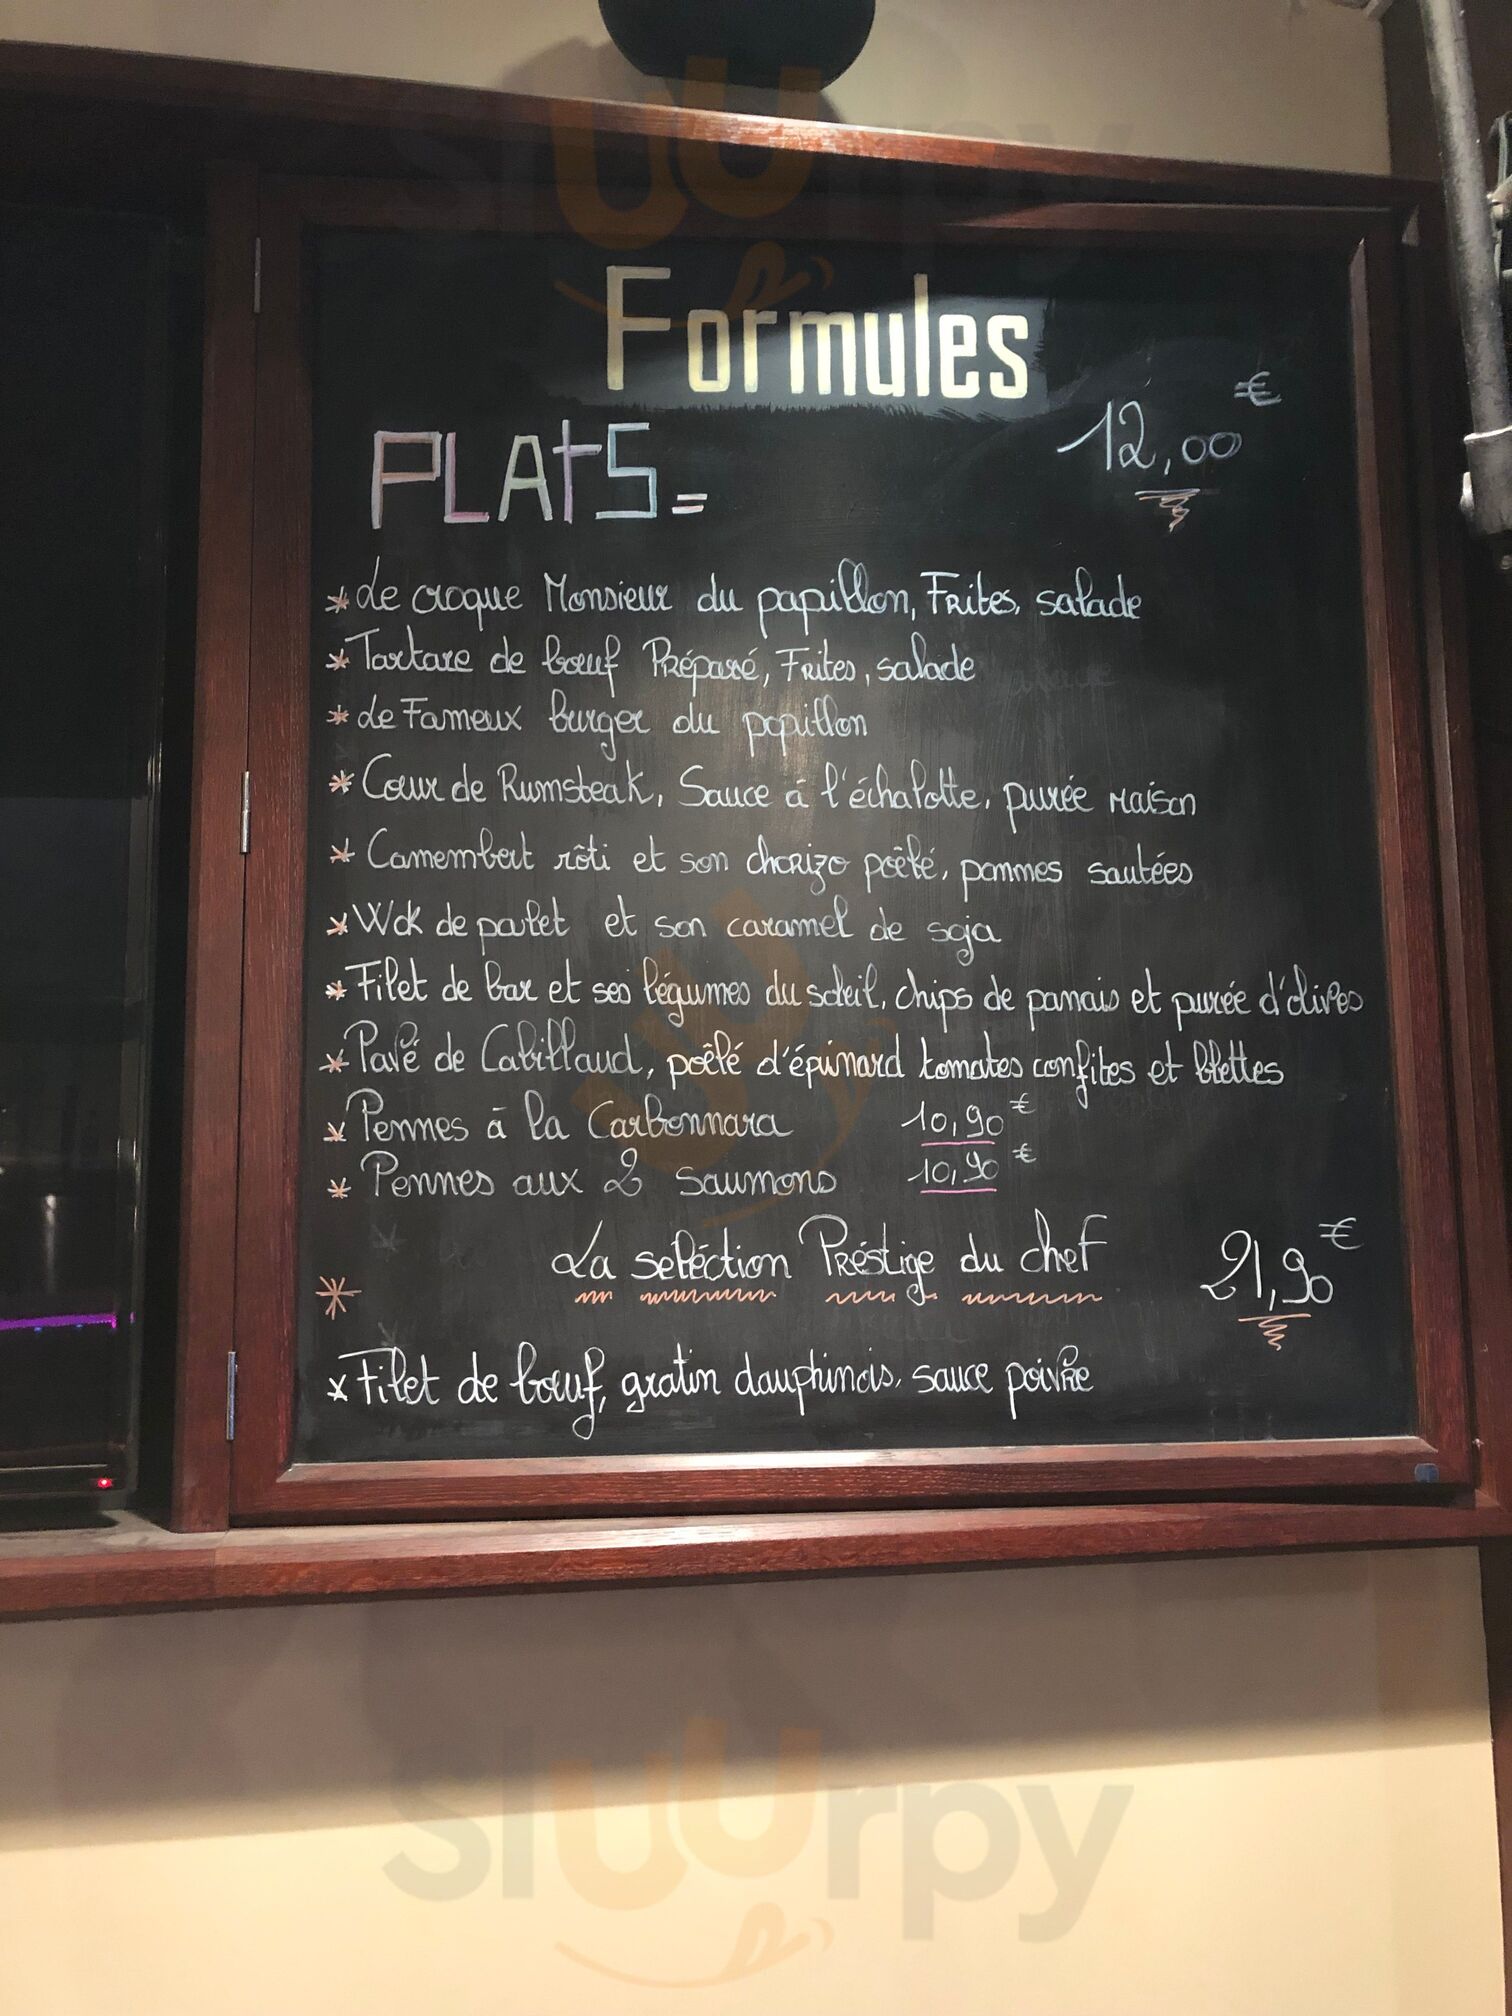 Formules
PLAtS = 12,00 €
* Le croque Monsieur du papillon, Frites, salade
* Tartare de bœuf Préparé, Frites, salade
* Le Fameux burger du papillon
* Cœur de Rumsteak, Sauce à l'échalotte, purée Maison
* Camembert rôti et son chorizo poêlé, pommes sautées
* Wok de poulet et son caramel de soja
* Filet de bar et ses légumes du soleil, chips de panais et purée d'olives
* Pavé de Cabillaud, poêlé d'épinard tomates confites et blettes
* Pennes à la Carbonnara 10,90 €
* Pennes aux 2 saumons 10,90 €
* La seléction Préstige du chef 21,90 €
* Filet de bœuf, gratin dauphinois, sauce poivre
sluurpy